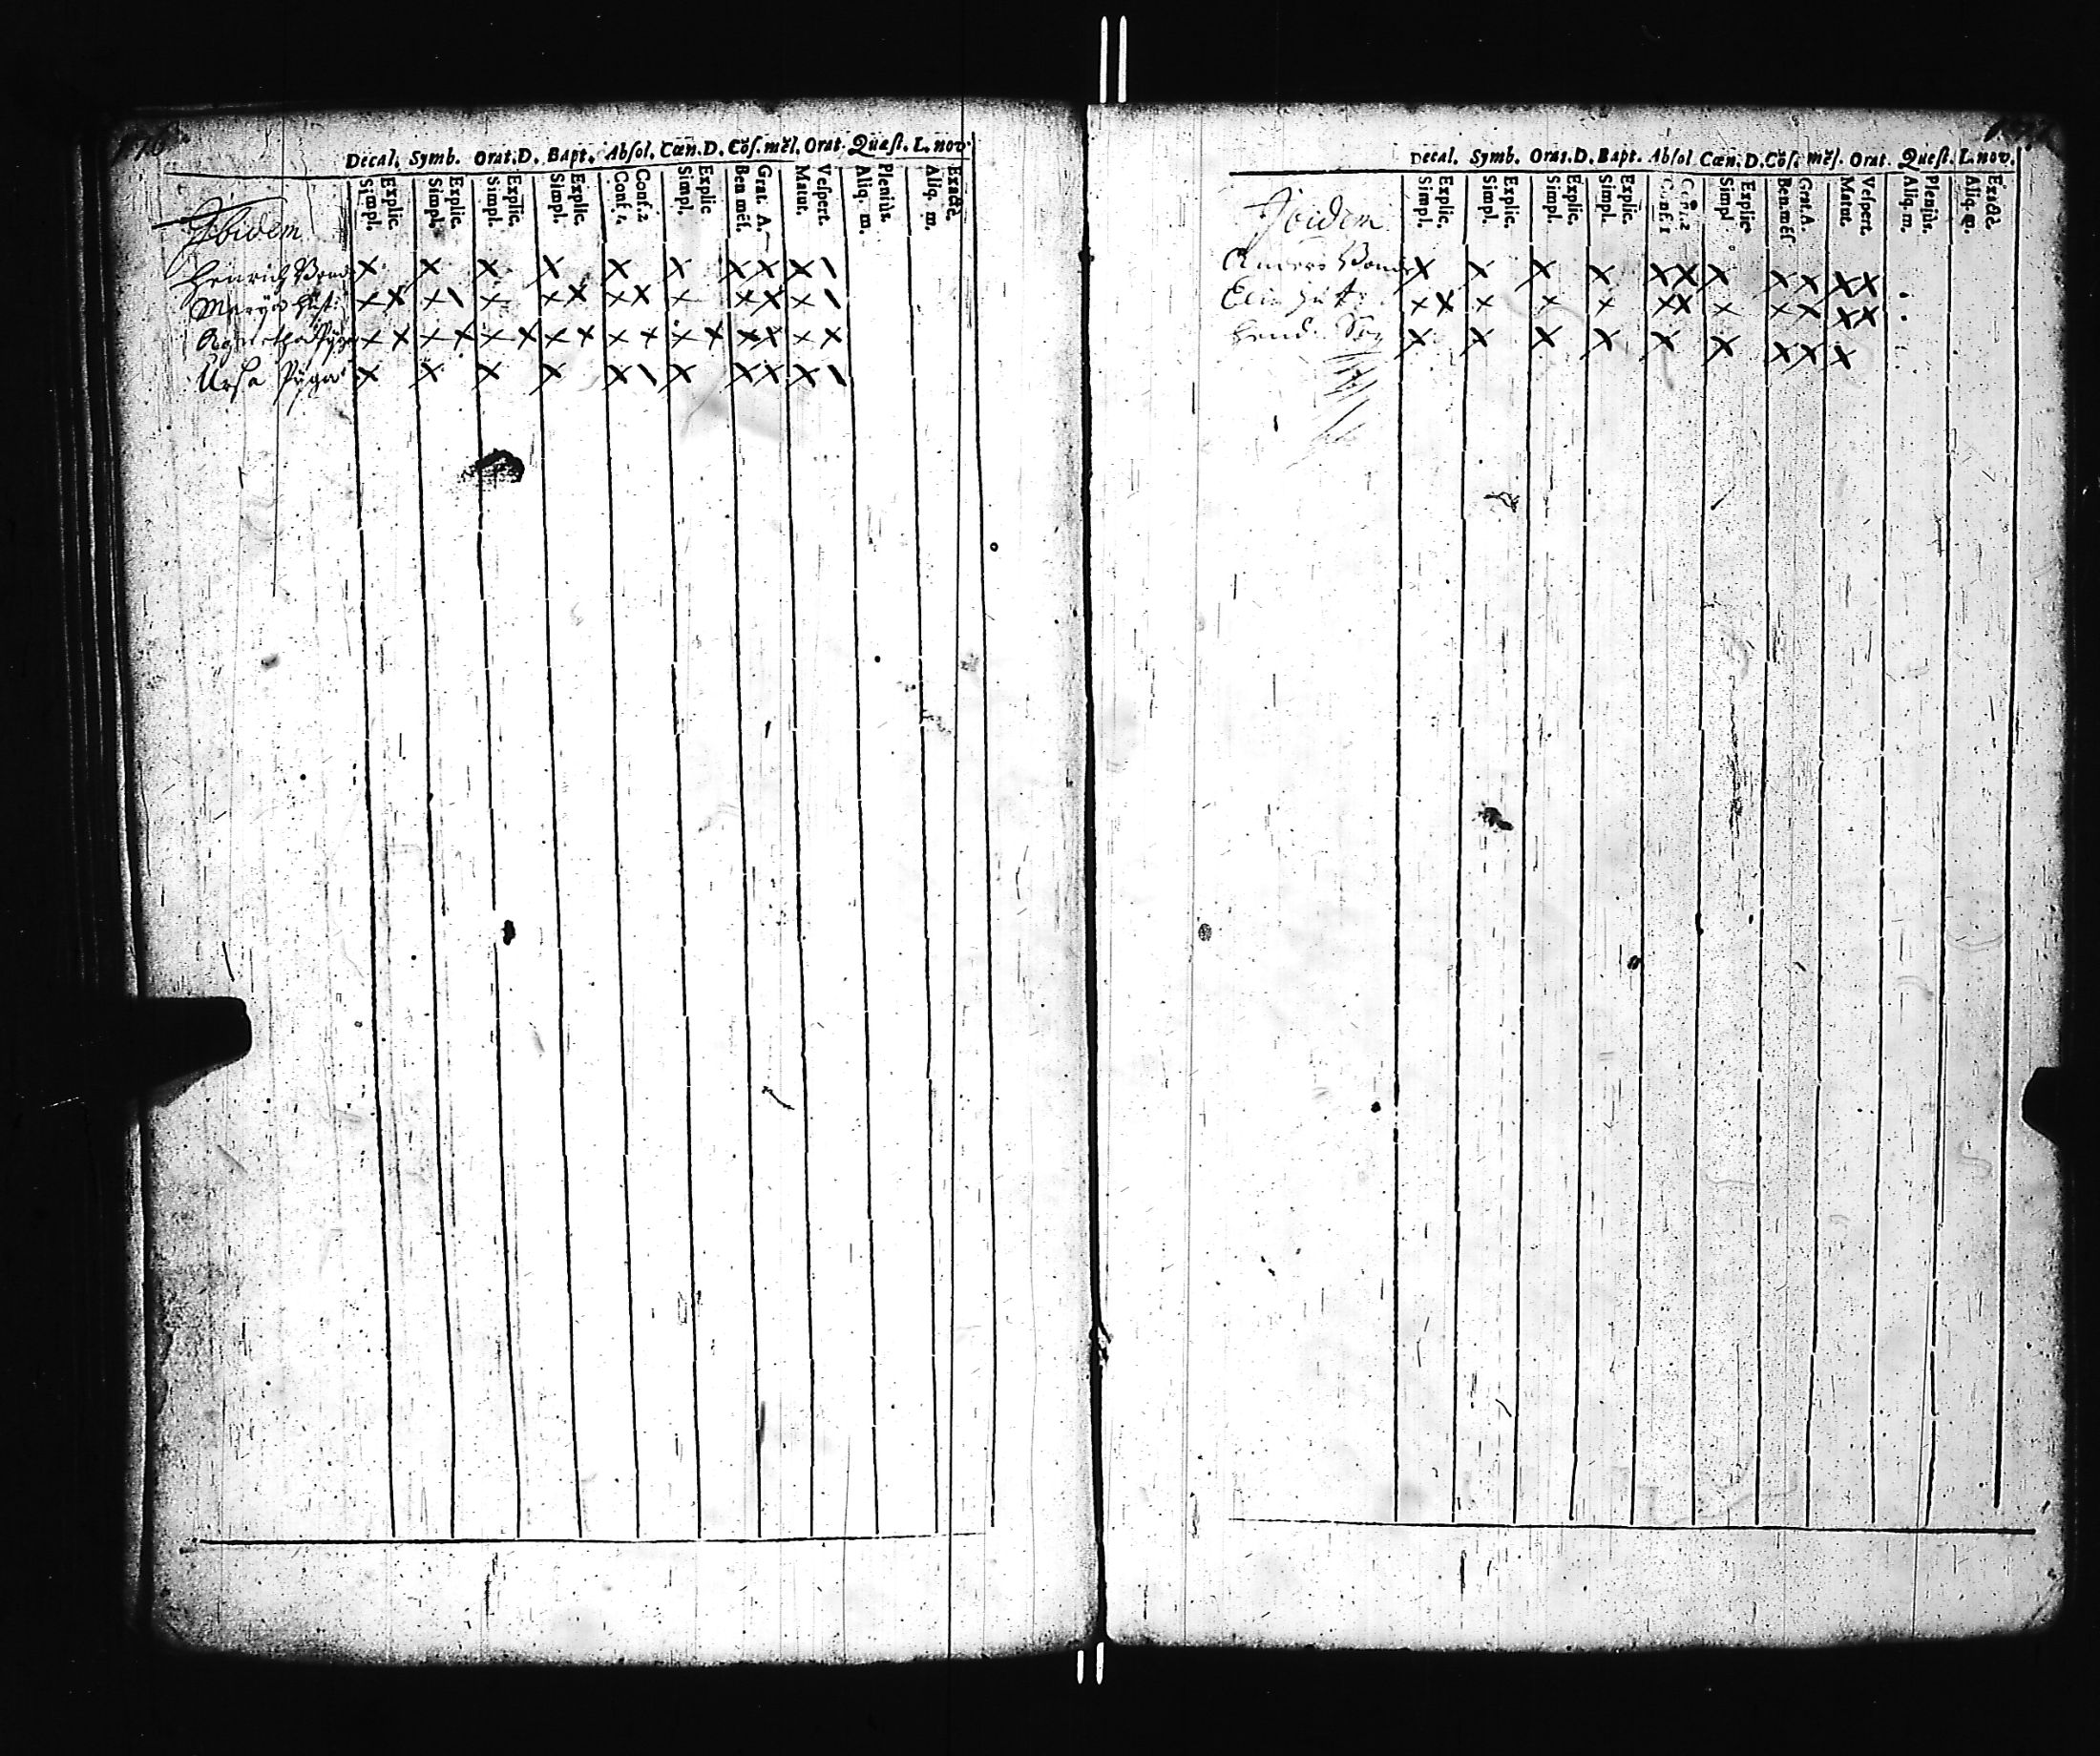 176
Decal. Symb. Orat. D. Bapt. Absol. Cœn. D. Cōs. mēs. Orat. Quæst. L. nov.
Simpl. Explic. Simpl. Explic. Simpl. Explic. Simpl. Explic. Conf. 1. Conf. 2 Simpl. Explic Ben mēs. Grat. A. Matut. Vespert. Aliq. m. Plenius. Aliq. m. Exactè.
Ibidem
Henrich Bond x x x x x x x x x \
Maryo hust: x x x \ x x x x x x x x x \
x x x x x x x x x x x x x x x x
Ursa Pÿga x x x x x \ x x x x \
Decal. Symb. Orat. D. Bapt. Absol Cœn. D. Cōs. mēs. Orat. Quæst. L. nov.
Simpl. Explic. Simpl. Explic. Simpl. Explic. Simpl. Explic. Conf. 1 Conf. 2 Simpl Explic Ben. mēs Grat. A. Matut. Vespert. Aliq. m. Plenius. Aliq. m. Exactè.
Ibidem
Anders Bond x x x x x x x x x x x
Elin hust: x x x x x x x x x x x x
Hend. Son x x x x x x x x x